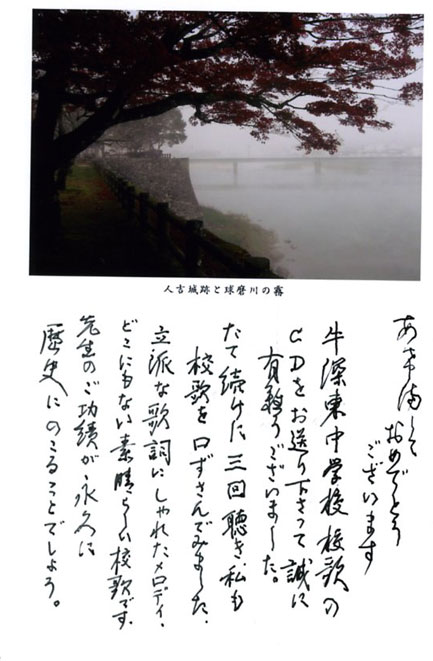 人吉城跡と球磨川の霧
あけまして
おめでとう
ございます
牛深東中学校校歌の
CDをお送り下さって誠に
有難うございました。
たて続けに三回聴き、私も
校歌を口ずさんでみました。
立派な歌詞にしゃれたメロディ、
どこにもない素晴らしい校歌です。
先生のご功績が永久に
歴史にのこることでしょう。